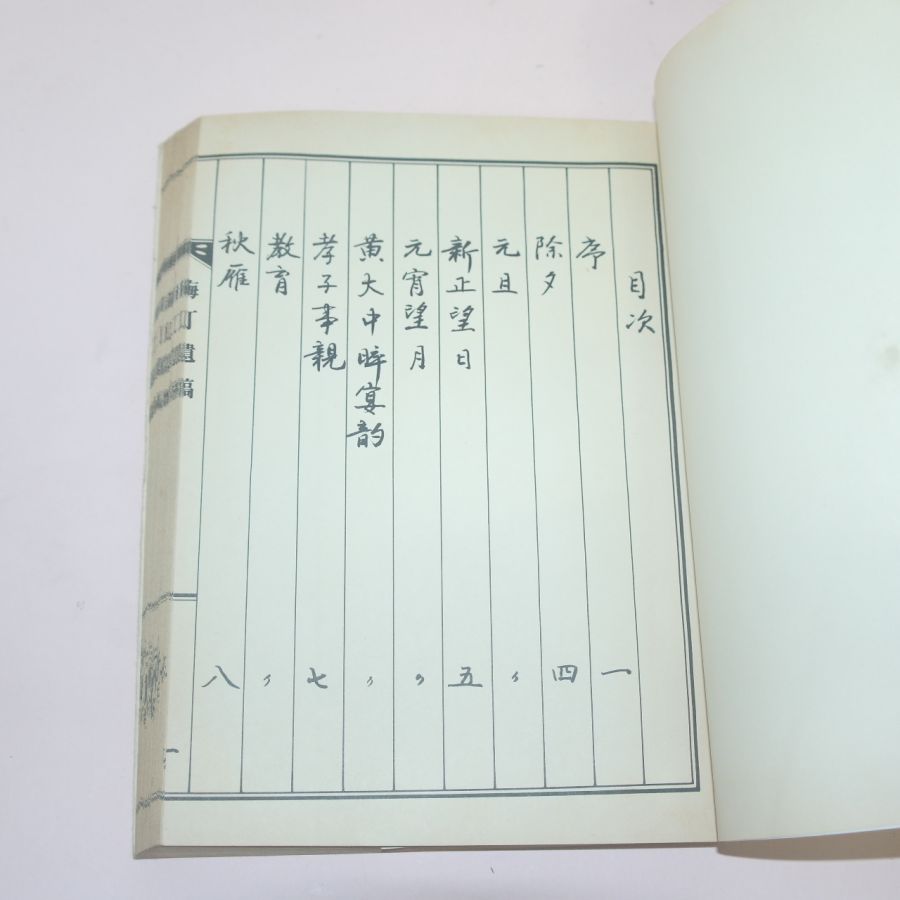 目次
序 一
除夕 四
元旦 〃
新正望日 五
元宵望月 〃
黄大中晬宴韵 〃
孝子事親 七
教育 〃
秋雁 八
海町遺稿
一